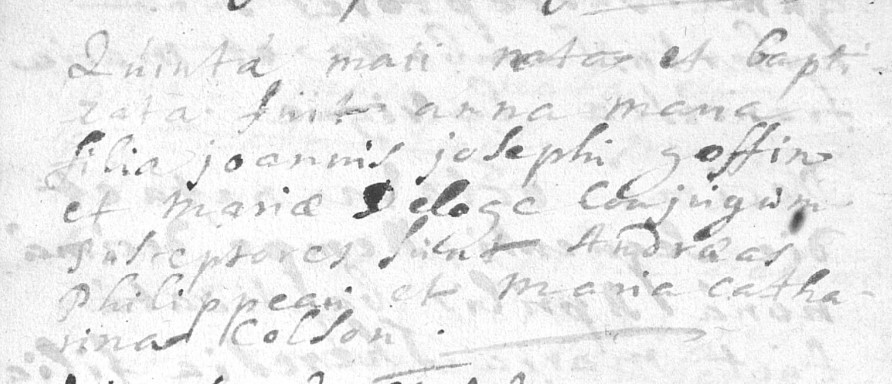 Quinta maii nata et bapti-
zata fuit anna maria
filia joannis josephi goffin
et mariæ Deloge Conjugum
Susceptores sunt Andræas
Philippeau et maria catha-
rina Colson.